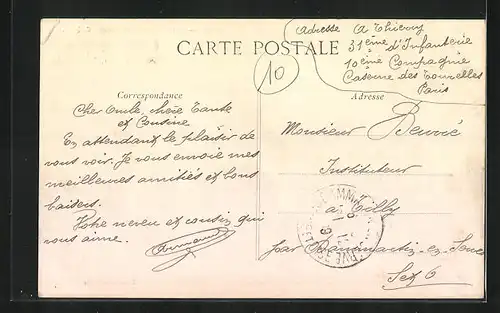 Adresse A Thierry
31ème d'Infanterie
10ème Compagnie
Caserne des Tourelles
Paris
CARTE POSTALE
10
Correspondance
Adresse
Cher Oncle, chère Tante
et Cousine
En attendant le plaisir de
vous voir. Je vous envoie mes
meilleures amitiés et bons
baisers.
Votre neveu et cousin qui
vous aime.
Monsieur
Instituteur
a Tilly
par